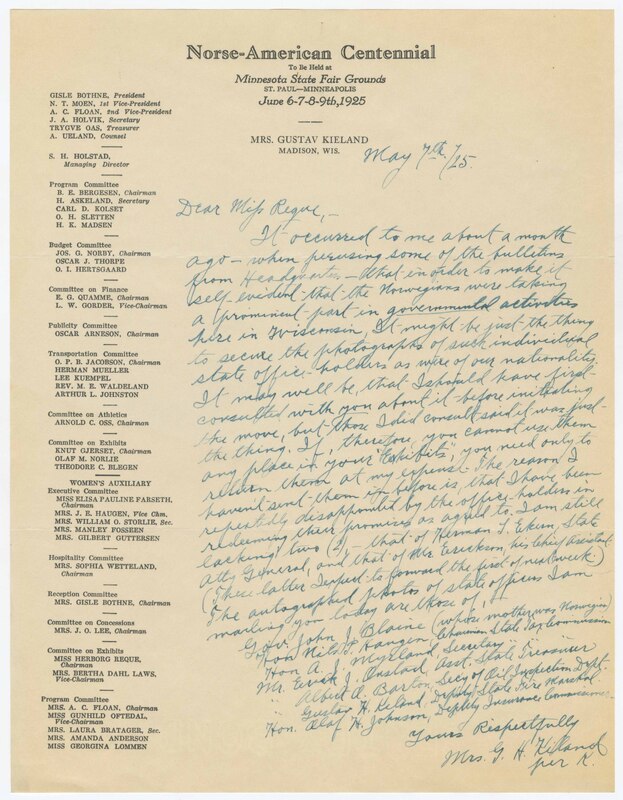 Norse-American Centennial
To Be Held at
Minnesota State Fair Grounds
ST. PAUL—MINNEAPOLIS
June 6-7-8-9th, 1925
MRS. GUSTAV KIELAND
MADISON, WIS.
GISLE BOTHNE, President
N. T. MOEN, 1st Vice-President
A. C. FLOAN, 2nd Vice-President
J. A. HOLVIK, Secretary
TRYGVE OAS, Treasurer
A. UELAND, Counsel
S. H. HOLSTAD,
Managing Director
Program Committee
B. E. BERGESEN, Chairman
H. ASKELAND, Secretary
CARL D. KOLSET
O. H. SLETTEN
H. K. MADSEN
Budget Committee
JOS. G. NORBY, Chairman
OSCAR J. THORPE
O. I. HERTSGAARD
Committee on Finance
E. G. QUAMME, Chairman
L. W. GORDER, Vice-Chairman
Publicity Committee
OSCAR ARNESON, Chairman
Transportation Committee
O. P. B. JACOBSON, Chairman
HERMAN MUELLER
LEE KUEMPEL
REV. M. E. WALDELAND
ARTHUR L. JOHNSTON
Committee on Athletics
ARNOLD C. OSS, Chairman
Committee on Exhibits
KNUT GJERSET, Chairman
OLAF M. NORLIE
THEODORE C. BLEGEN
WOMEN'S AUXILIARY
Executive Committee
MISS ELISA PAULINE FARSETH,
Chairman
MRS. J. E. HAUGEN, Vice Chm.
MRS. WILLIAM O. STORLIE, Sec.
MRS. MANLEY FOSSEEN
MRS. GILBERT GUTTERSEN
Hospitality Committee
MRS. SOPHIA WETTELAND,
Chairman
Reception Committee
MRS. GISLE BOTHNE, Chairman
Committee on Concessions
MRS. J. O. LEE, Chairman
Committee on Exhibits
MISS HERBORG REQUE,
Chairman
MRS. BERTHA DAHL LAWS,
Vice-Chairman
Program Committee
MRS. A. C. FLOAN, Chairman
MISS GUNHILD OFTEDAL,
Vice-Chairman
MRS. LAURA BRATAGER, Sec.
MRS. AMANDA ANDERSON
MISS GEORGINA LOMMEN
May 7th/25.
Dear Miss Reque,—
It occurred to me about a month
ago — when perusing some of the bulletins
from Headquarters — that in order to make it
self-evident that the Norwegians were taking
a prominent part in governmental activities
here in Wisconsin, it might be just the thing
to secure the photographs of such individual
state office-holders as were of our nationality.
It may well be, that I should have first
consulted with you about it before initiating
the move, but those I did consult said it was just
the thing. If, therefore, you cannot use them
any place in your "Exhibits", you need only to
return them at my expense. The reason I
haven't sent them in before is, that I have been
repeatedly disappointed by the office-holders in
redeeming their promises as agreed to. I am still
lacking two (2), — that of Herman L. Ekern, State
Atty General, and that of Mr. Erickson, his Chief Assistant
(These latter I expect to forward the first of next week.)
The autographed photos of state officers I am
mailing you today are those of, :
Gov. John J. Blaine (whose mother was Norwegian)
Hon. Nils P. Haugen, Chairman State Tax Commission
Hon A. J. Myrland, Secretary "
Mr. Erick J. Onstad, Asst. State Treasurer
" Albert A. Barton, Secy of Oil Inspection Dept.
Gustav H. Kieland, Deputy State Fire Marshal
Hon. Olaf H. Johnson, Deputy Insurance Commissioner
Yours Respectfully
Mrs. G. H. Kieland
per K.